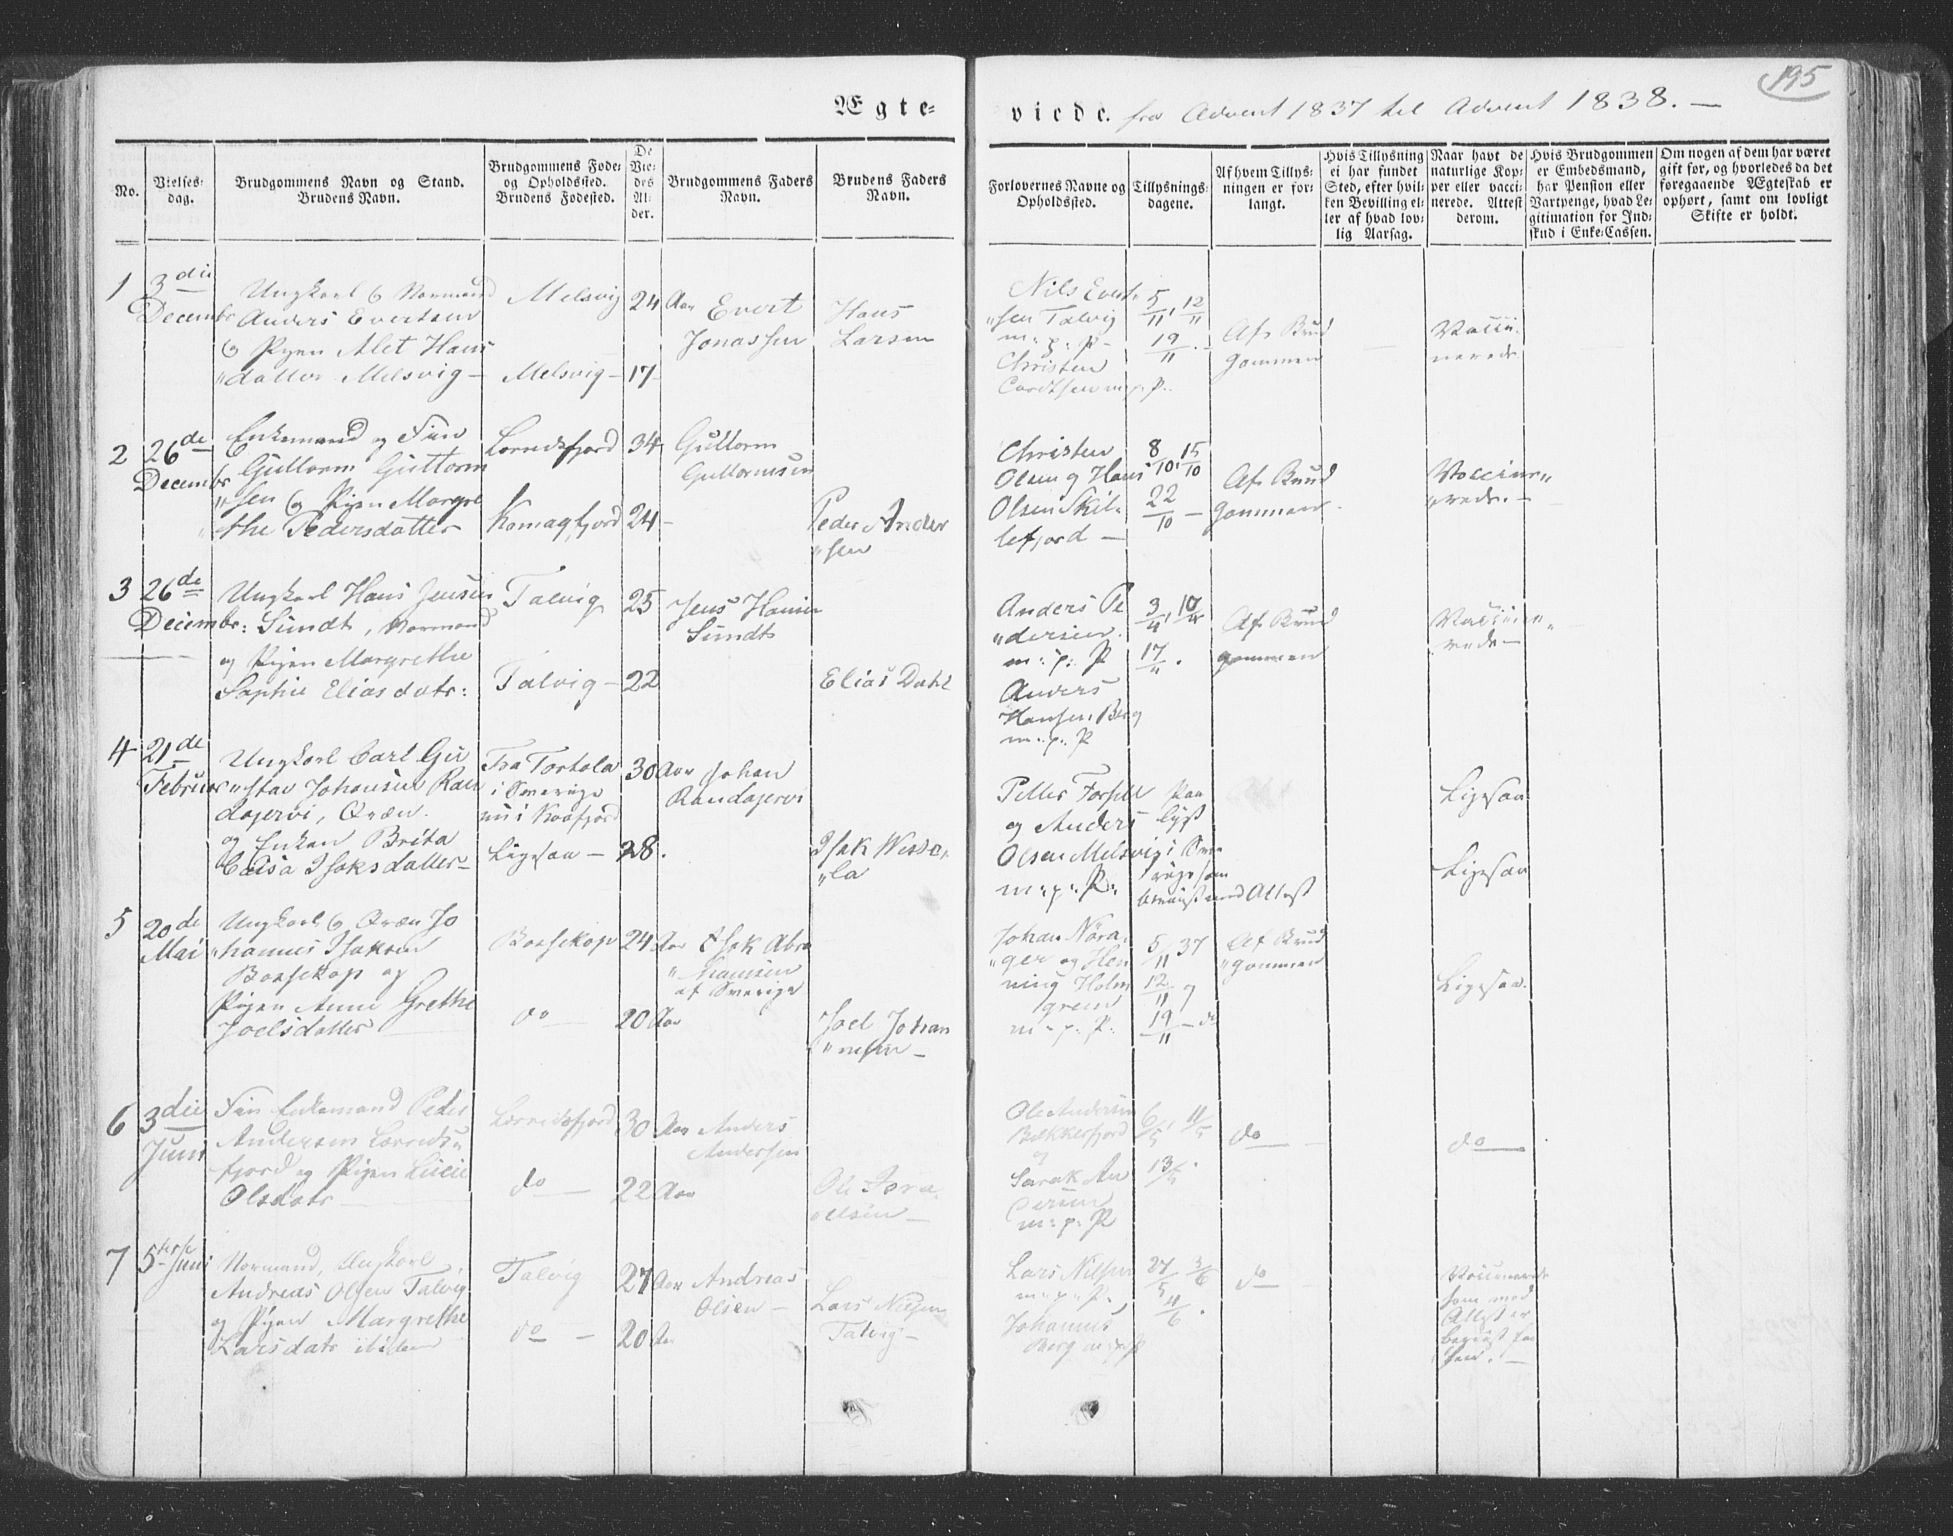 195
Ægte-
viede. fra Advent 1837 til Advent 1838. —
No.
Vielses-
dag.
Brudgommens Navn og Stand.
Brudens Navn.
Brudgommens Føde-
og Opholdssted.
Brudens Fødested.
De
Vie-
des
Al-
der.
Brudgommens Faders
Navn.
Brudens Faders
Navn.
Forlovernes Navne og
Opholdssted.
Tillysnings-
dagene.
Af hvem Tillys-
ningen er for-
langt.
Hvis Tillysning
ei har fundet
Sted, efter hvil-
ken Bevilling el-
ler af hvad lov-
lig Aarsag.
Naar havt de
naturlige Kop-
per eller vacci-
nerede. Attest
derom.
Hvis Brudgommen
er Embedsmand,
har Pension eller
Vartpenge, hvad Le-
gitimation for Ind-
skud i Enke-Cassen.
Om nogen af dem har været
gift før, og hvorledes da det
foregaaende Ægteskab er
ophørt, samt om lovligt
Skifte er holdt.
1
3die
Decembr
Ungkarl og Normand
Anders Evertsen
og Pigen Alet Hans
"datter Melsvig —
Melsvig
Melsvig —
24 Aar
17
Evert
Jonassen
Hans
Larsen
Nils Evert-
"sen Talvig
m: p: P —
Christen
m. p. P.
5/11, 12/11
19/11. —
Af Brud
gommen
Vacci-
nerede
2
26de
Decembr
Enkemand og Fin
Guttorm Guttorm
"sen og Pigen Margre
"the Pedersdatter
Lerredsfjord
Komagfjord
34
24 —
Guttorm
Guttormsen
Peder Ander
"sen
Christen
Olsen og Hans
Olsen Skil-
lefjord —
8/10, 15/10
22/10 —
Af Brud
gommen.
Vaccine-
"rede. —
3
26de
Decembr:
Ungkarl Hans Jensen
Sundt, Normand
og Pigen Margrethe
Sophie Eliasdatr:
Talvig
Talvig —
25
22
Jens Hansen
Sundt
Elias Dahl
Anders Pe
"dersen.
m: p: P
Anders
Hansen Berg
m: p: P
17/11.
Af Brud
gommen
Vaccine-
rede —
4
21de
Februar
Ungkarl Carl Gu
"stav Johansen Ran
dajervi, Qvæn.
og Enken Brita
Caisa Isaksdatter —
Fra Tortola
i Sverige
nu i Kaafjord
Ligesaa —
30 Aar
28.
Johan
Randajervi
Isak Wisso-
"la
Petter Forsell
og Anders
Olsen Melsvig
m: p: P.
lyst
i Sve-
rige som
bevist med Attest
Ligesaa
Ligesaa
5
20de
Mai
Ungkarl og Qvæn Jo
"hannes Isaksen
Bossekop og
Pigen Anne Grethe
Joelsdatter
Bossekop
do
24 Aar
20 Aar
Isak Abra
"hamsen
af Sverige
Joel Johan
"nesen —
Johan
"ger og Hen
ning Holm
gren
m: p: P.
5/11 37
12/11 og
19/11 — do
Af Brud
"gommen
Ligesaa.
6
3die
Juni
Fin Enkemand Peder
Andersen Lerreds-
fjord og Pigen Lucie
Olsdatr
Lerredsfjord
do
30 Aar
22 Aar
Anders
Andersen
Ole Isra
"elsen —
Ole Andersen
Bækkerfjord
og
Sarak An
dersen
m: p: P
do
do
7
5te Juni
Normand, Ungkarl
Andreas Olsen Talvig
og Pigen Margrethe
Larsdatr ibidem
Talvig
do —
27 Aar
20 Aar
Andreas
Olsen —
Lars Nilsen
Talvig —
Lars Nilsen
m: p: P.
Johannes
Berg m: p: P
27/5 3/6
4/6.
do
Vaccinerede
som med
Attest er